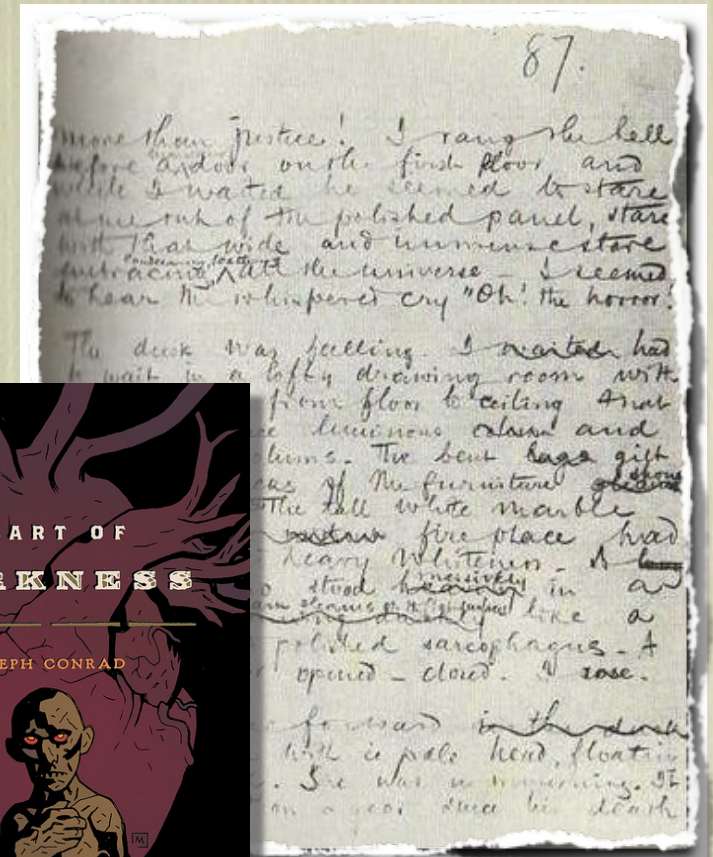 87.
more than justice! I rang the bell
before a door on the first floor and
while I waited he seemed to stare
at me out of the polished panel, stare
with that wide and immense stare
embracing, condemning, loathing all the universe – I seemed
to hear the whispered cry "Oh! the horror!
The dusk was falling. I waited had
to wait in a lofty drawing room with
from floor to ceiling that
luminous column and
olumns. The bent gilt
of the furniture shone
The tall white marble
fire place had
heavy whiteness. A
stood massively in a
like a
polished sarcophagus. A
opened – closed. I rose.
forward in the dusk
pale head, floating
She was in mourning. It
a year since his death
ART OF
RKNESS
EPH CONRAD